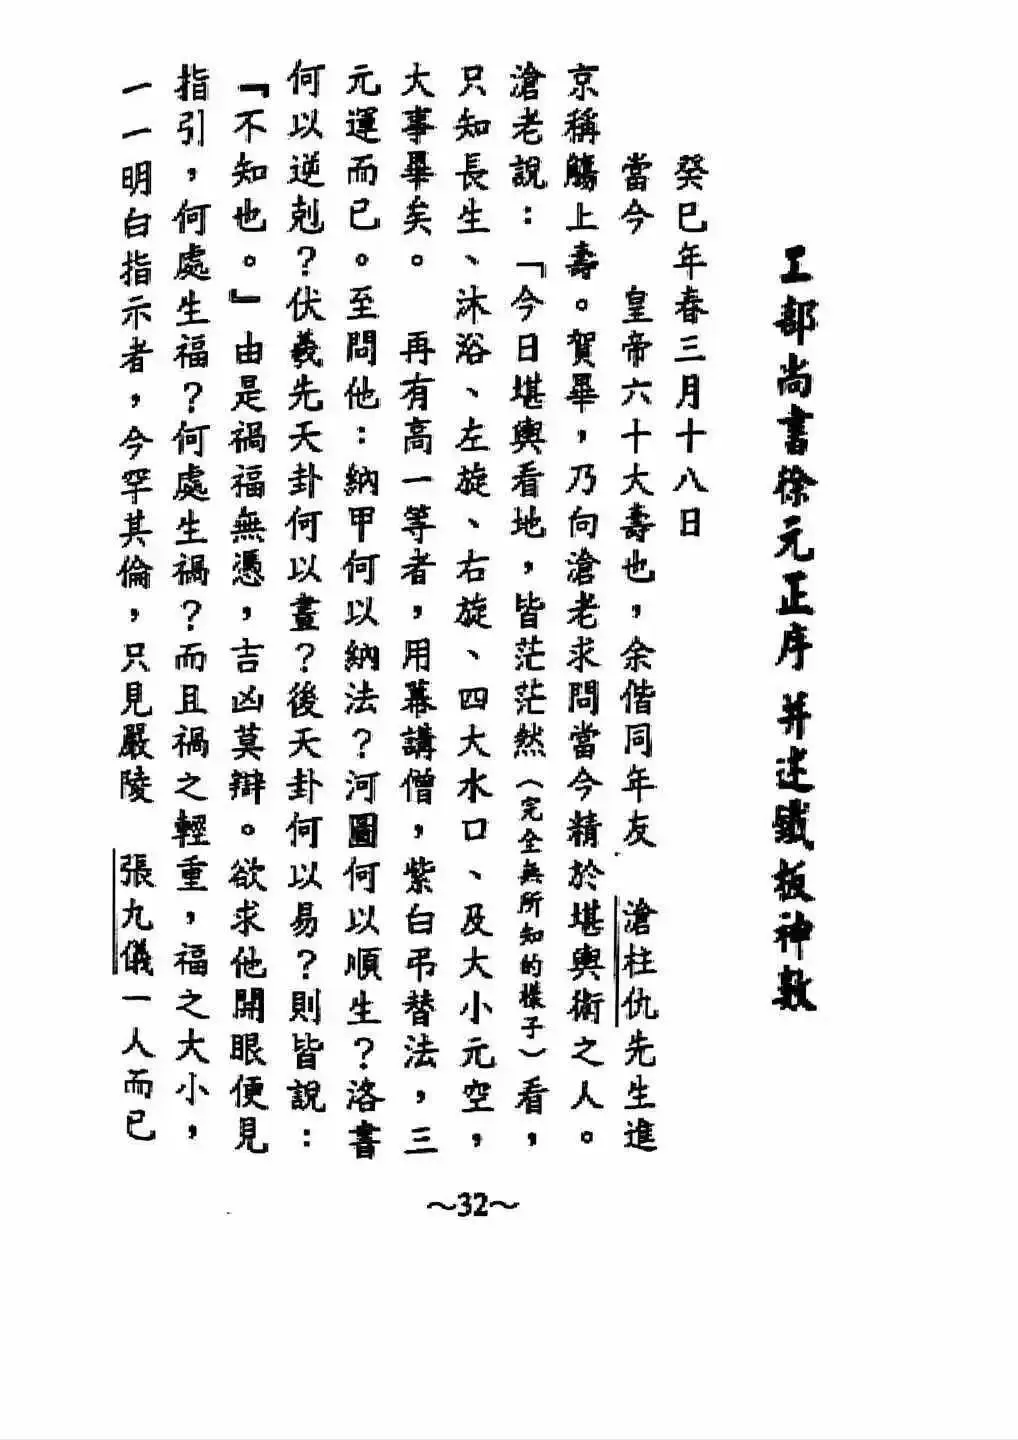 工部尚書徐元正序 并述鐵板神數
癸巳年春三月十八日
當今 皇帝六十大壽也，余偕同年友 滄柱仇先生進
京稱觴上壽。賀畢，乃向滄老求問當今精於堪輿術之人。
滄老說：「今日堪輿看地，皆茫茫然（完全無所知的樣子）看，
只知長生、沐浴、左旋、右旋、四大水口、及大小元空，
大事畢矣。 再有高一等者，用幕講僧，紫白吊替法，三
元運而已。至問他：納甲何以納法？河圖何以順生？洛書
何以逆剋？伏羲先天卦何以畫？後天卦何以易？則皆說：
『不知也。』由是禍福無憑，吉凶莫辯。欲求他開眼便見
指引，何處生福？何處生禍？而且禍之輕重，福之大小，
一一明白指示者，今罕其倫，只見嚴陵 張九儀一人而已
～32～